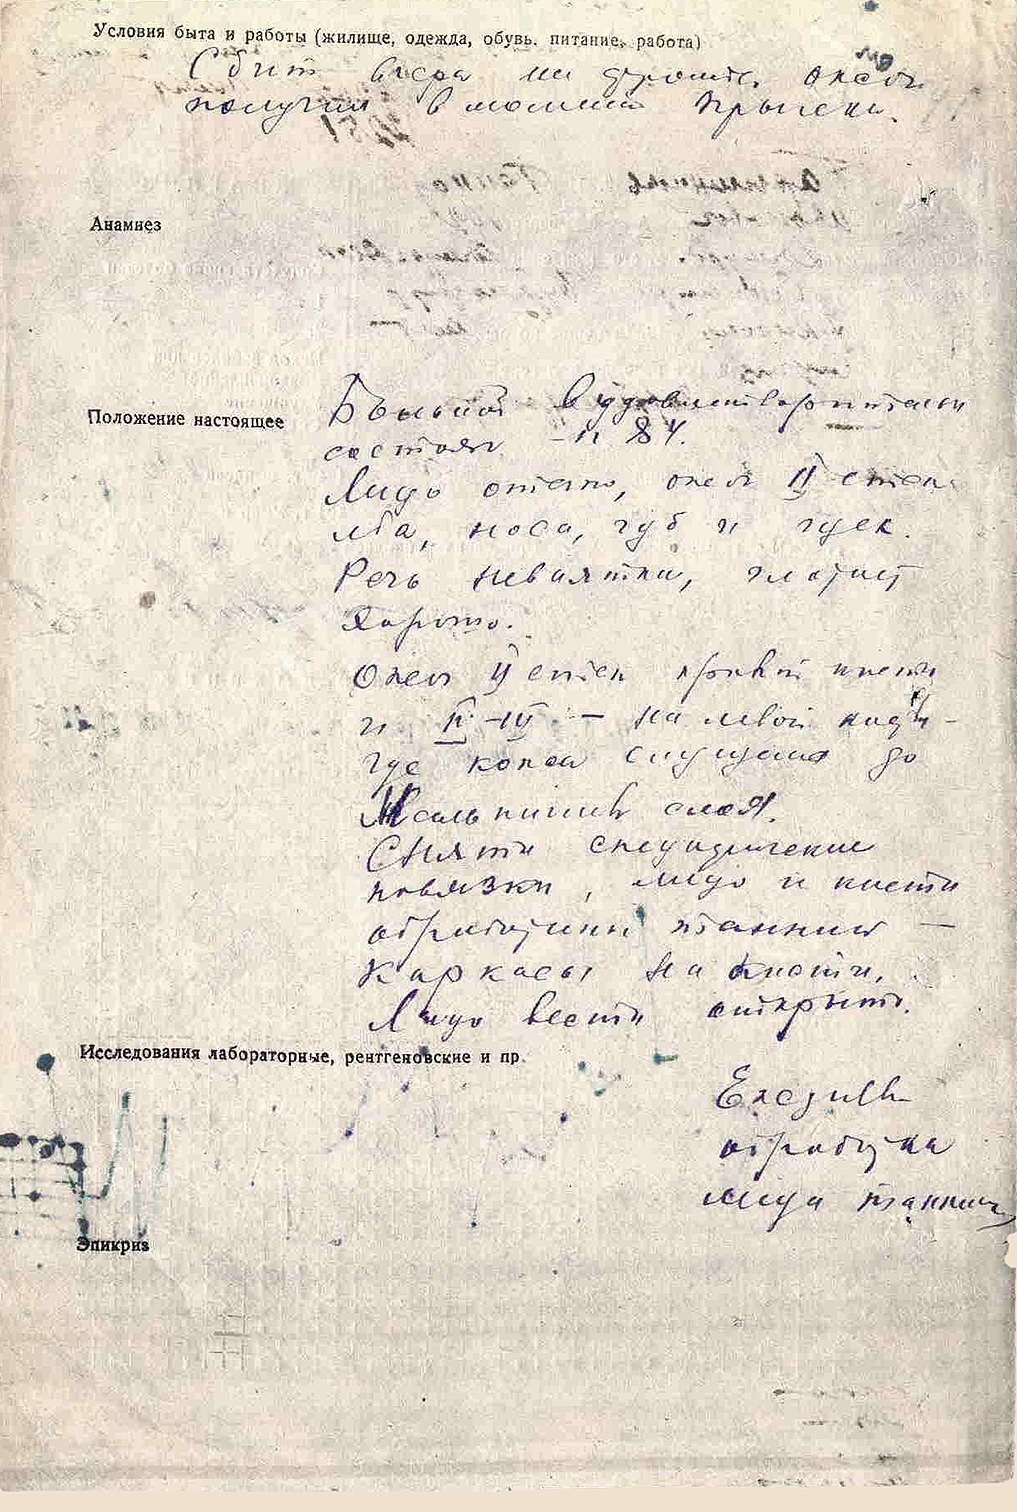 Условия быта и работы (жилище, одежда, обувь. питание, работа)
Сбит вчера на фронте, ожог
получил в момент прыжка.
Анамнез
Положение настоящее
Больной в удовлетворительн
состоян. п 84.
Лицо отечно, ожог II степ
лба, носа, губ и щек.
Речь невнятна, глотает
хорошо.
Ожог II степ правой кисти
и II-III – на левой кисти –
где кожа спущена до
Мальпигиев слоя.
Сняты специфические
повязки, лицо и кисти
обработаны танином –
Каркасы на кисти,
Лицо вести открыто.
Исследования лабораторные, рентгеновские и пр.
Ежедневн
обработка
лица танином
Эпикриз